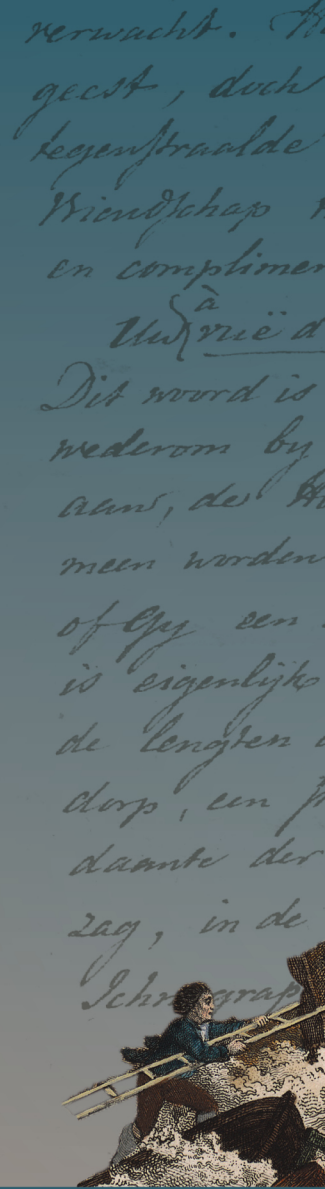 verwacht.
geest, doch
tegenstraalde
Vriendschap
en complimen
à
Uw vrië d
Dit woord is
wederom by
aans, de
meen worden
of Gy een
is eigenlijk
de lengten
dorp, een
daante der
zag, in de